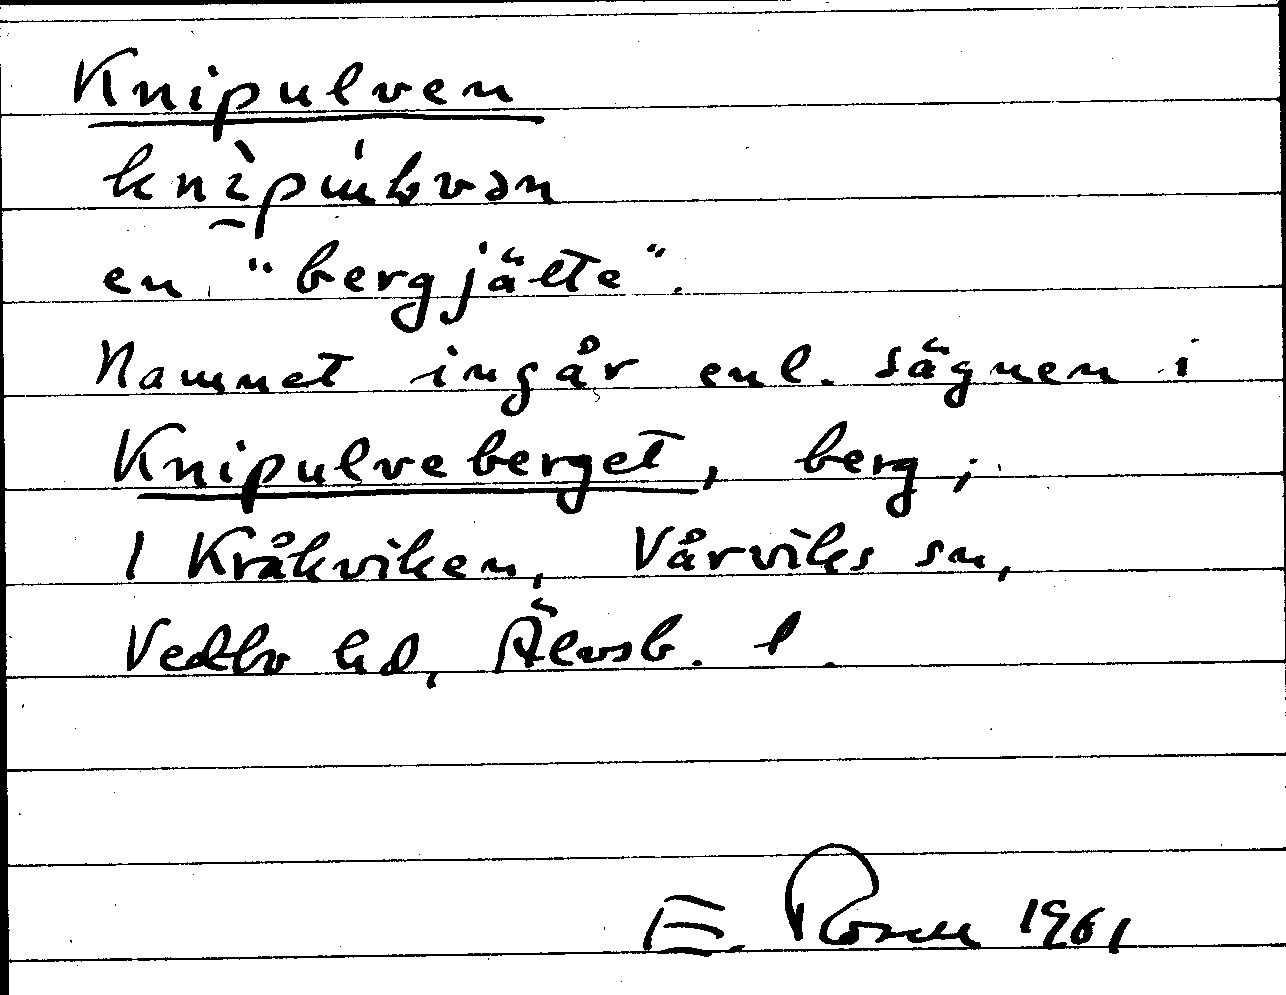 Knipulven
en "bergjätte".
Namnet ingår enl. sägnen i
Knipulveberget, berg;
1 Kråkviken, Vårviks sn,
Vedbo hd, Älvsb. l.
E. Rosen 1961